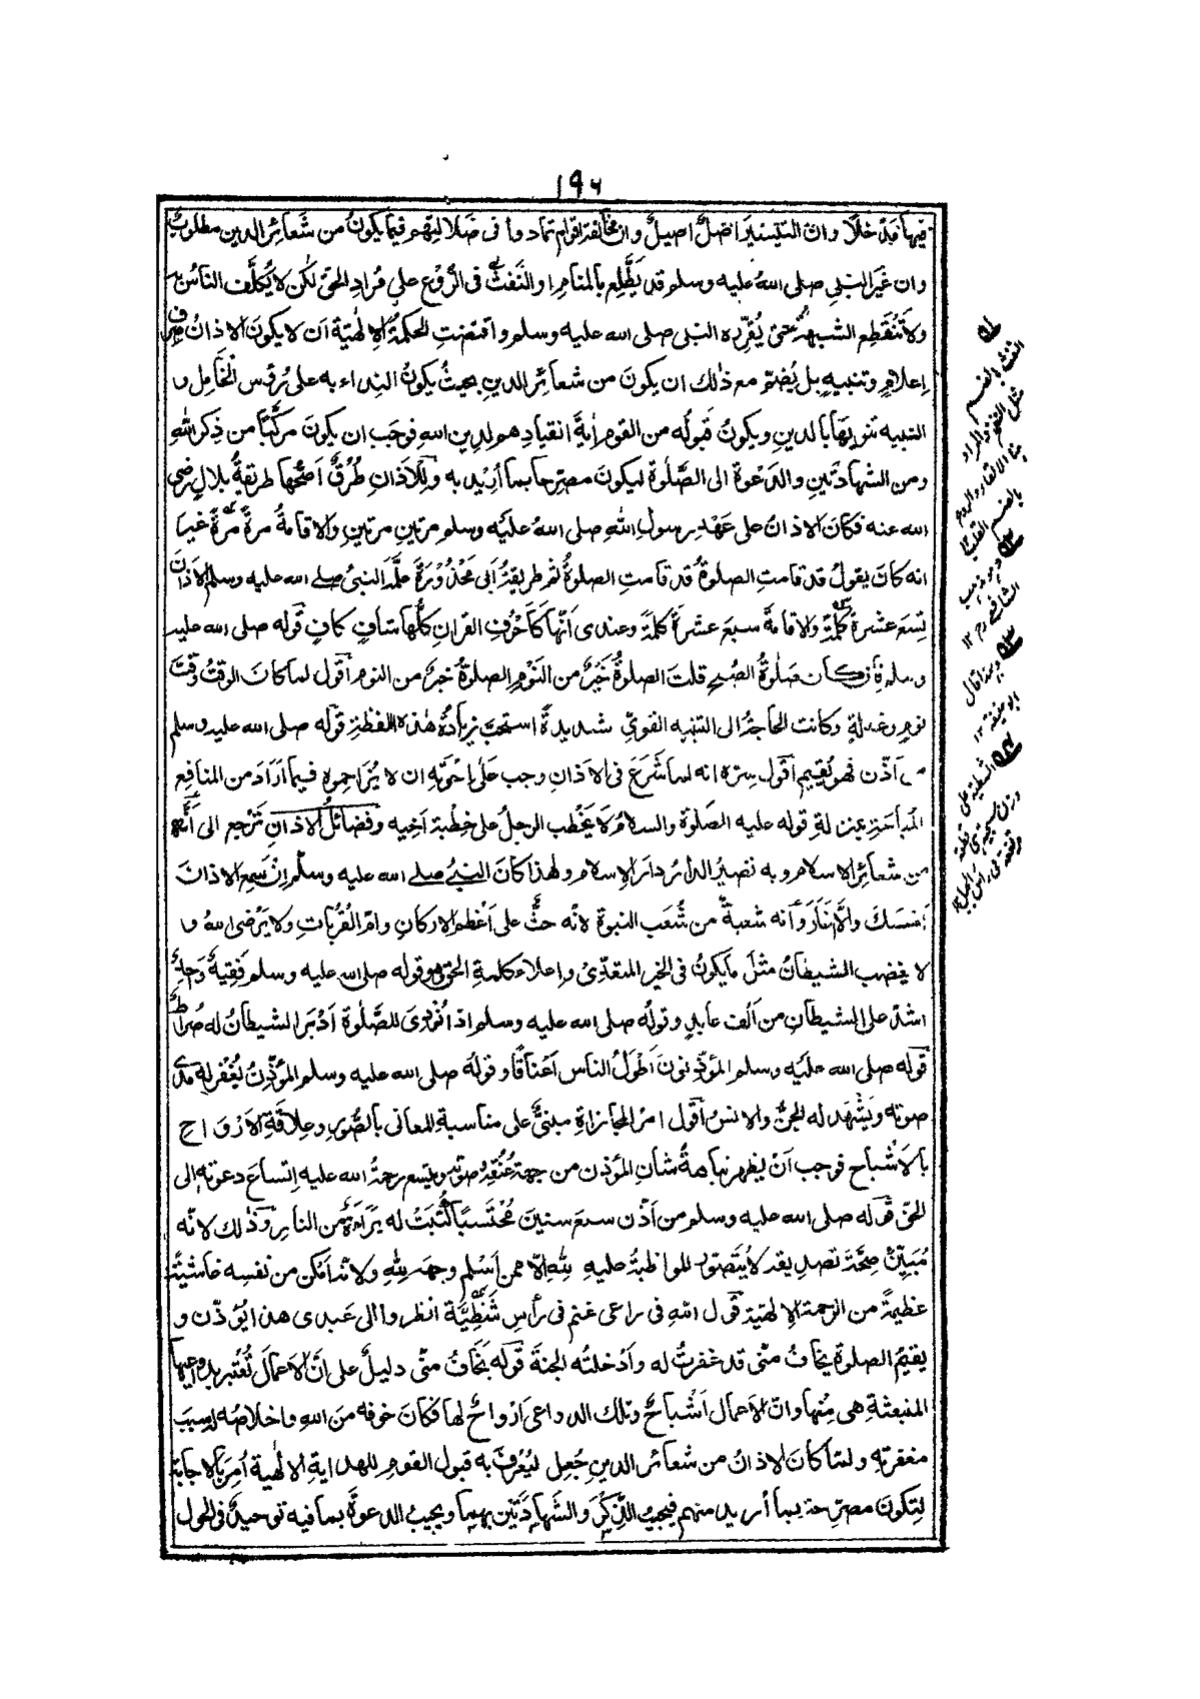 ١٩٦
فيها مدخلا وان التيسير اصل اصيل وان مخالفة اقوام تمادوا فى ضلالتهم فيما يكون من شعائر الدين مطلوب
وان غير النبي صلى الله عليه وسلم قد يطلع بالمنام او النفث فى الروع على مراد الحق لكن لا يكلف الناس به
ولا تنقطع الشبهة حتى يقرره النبى صلى الله عليه وسلم واقتضت الحكمة الالهية ان لا يكون الاذان صرف
إعلام وتنبيه بل يضم مع ذلك ان يكون من شعائر الدين بحيث يكون النداء به على رؤس الخامل و
النبيه تنويها بالدين ويكون قبوله من القوم أية انقيادهم لدين الله فوجب ان يكون مركبا من ذكر الله
ومن الشهادتين والدعوة الى الصلوة ليكون مصرحا بما أريد به وللاذان طرق اصحها طريقة بلال رضى
الله عنه فكان الاذان على عهد رسول الله صلى الله عليه وسلم مرتين مرتين والاقامة مرة مرة غير
انه كان يقول قد قامت الصلوة قد قامت الصلوة ثم طريقة أبى محذورة علمه النبى صلے الله عليه وسلم الاذان
تسع عشرة كلمة والاقامة سبع عشرة كلمة وعندى انها كاحرف القران كلها شاف كاف قوله صلى الله عليه
وسلم فان كان صلوة الصبح قلت الصلوة خير من النوم الصلوة خير من النوم اقول لما كان الوقت وقت
نوم وغفلة وكانت الحاجة الى التنبيه القوي شديدة استحب زيادة هذه اللفظة قوله صلى الله عليه وسلم
من أذن فهو يقيم اقول سره انه لما شرع فى الاذان وجب على إخوته ان لا يزاحموه فيما أراد من المنافع
المباحة بمنزلة قوله عليه الصلوة والسلام لا يخطب الرجل على خطبة اخيه وفضائل الاذان ترجع الى أنه
من شعائر الاسلام وبه تصير الدار دار الإسلام ولهذا كان النبى صلے الله عليه وسلم إن سمع الاذان
امسك والا اغار وأنه شعبة من شعب النبوة لانه حث على أعظم الاركان وام القربات ولا يرضى الله و
لا يغضب الشيطان مثل ما يكون فى الخير المتعدى وإعلاء كلمة الحق وهو قوله صلى الله عليه وسلم فقيه واحد
اشد على الشيطان من ألف عابد وقوله صلى الله عليه وسلم اذا نودى للصلوة أدبر الشيطان له ضراط
قوله صلى الله عليه وسلم المؤذنون أطول الناس أعناقا وقوله صلى الله عليه وسلم المؤذن يغفر له مدى
صوته ويشهد له الجن والانس أقول امر المجازاة مبنى على مناسبة المعانى بالصور وعلاقة الارواح
بالاشباح فوجب أن يظهر نباهة شان المؤذن من جهة عنقه وصوته ويتسع رحمة الله عليه إتساع دعوته إلى
الحق قوله صلى الله عليه وسلم من أذن سبع سنين محتسبا كتبت له براءة من النار وذلك لانه
مبين صحة تصديقه لا يتصور المواظبة عليه لله إلا ممن أسلم وجهه لله ولانه أمكن من نفسه غاشية
عظيمة من الرحمة الالهية قول الله فى راعى غنم فى رأس شظية انظروا الى عبدى هذا يؤذن و
يقيم الصلوة يخاف منى قد غفرت له وأدخلته الجنة قوله يخاف منى دليل على ان الاعمال تعتبر بدواعيها
المنبعثة هى منها وان الاعمال أشباح وتلك الدواعى أرواح لها فكان خوفه من الله واخلاصه له سبب
مغفرته ولما كان الاذان من شعائر الدين جعل ليعرف به قبول القوم للهداية الالهية أمر بالاجابة
لتكون مصرحة بما أريد منهم فيجيب الذكر والشهادتين بهما ويجيب الدعوة بما فيه توحيد فى الحول
النفث بالفم
مثل النفخ والمراد
هنا الالقاء والروع
بالضم القلب ١٢
وبه ذهب
الشافعى رح ١٢
وبهذا قال
ابو حنيفة ١٢
الشظية على